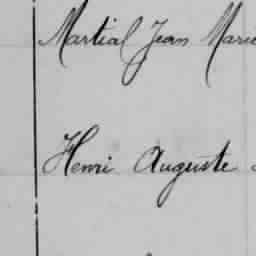 Martial Jean Marie
Henri Auguste